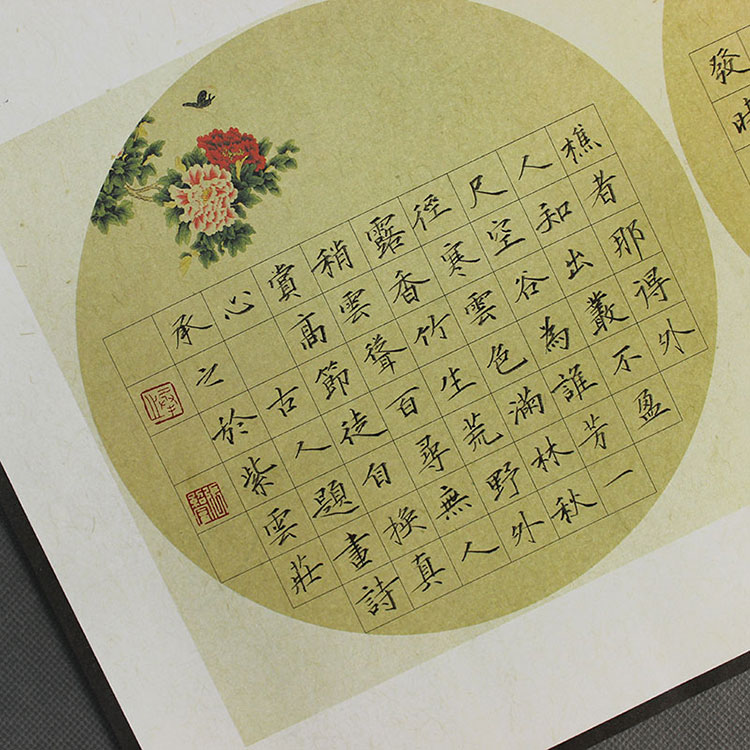 樵者那得外
人知出叢不盈
尺空谷為誰芳一
徑寒雲色滿林秋
露香竹生荒野外
稍雲聲百尋無人
賞高節徒自換真
心 古人題畫詩
承之於紫雲莊
發
時